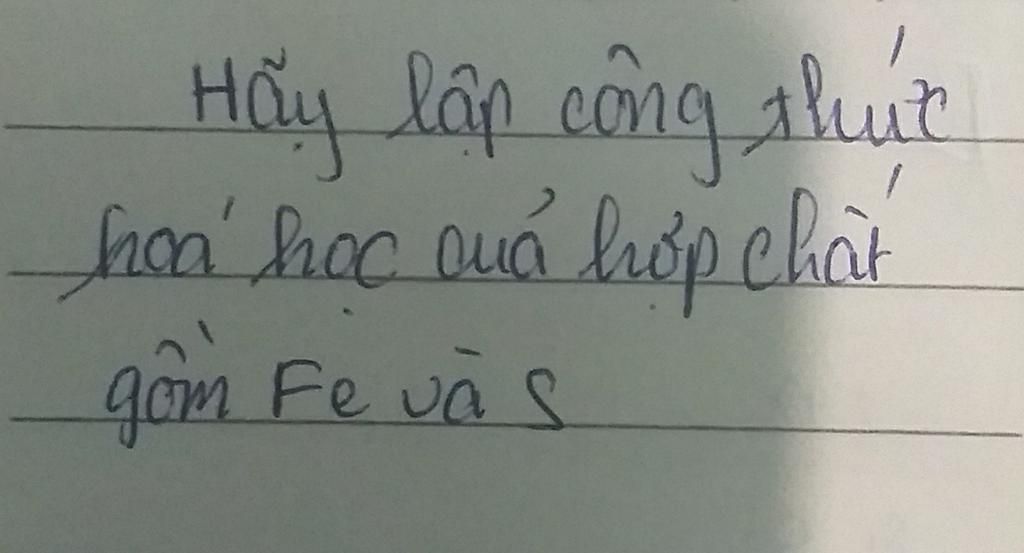 Hãy lập công thức
hoá học quả hợp chất
gồm Fe và S